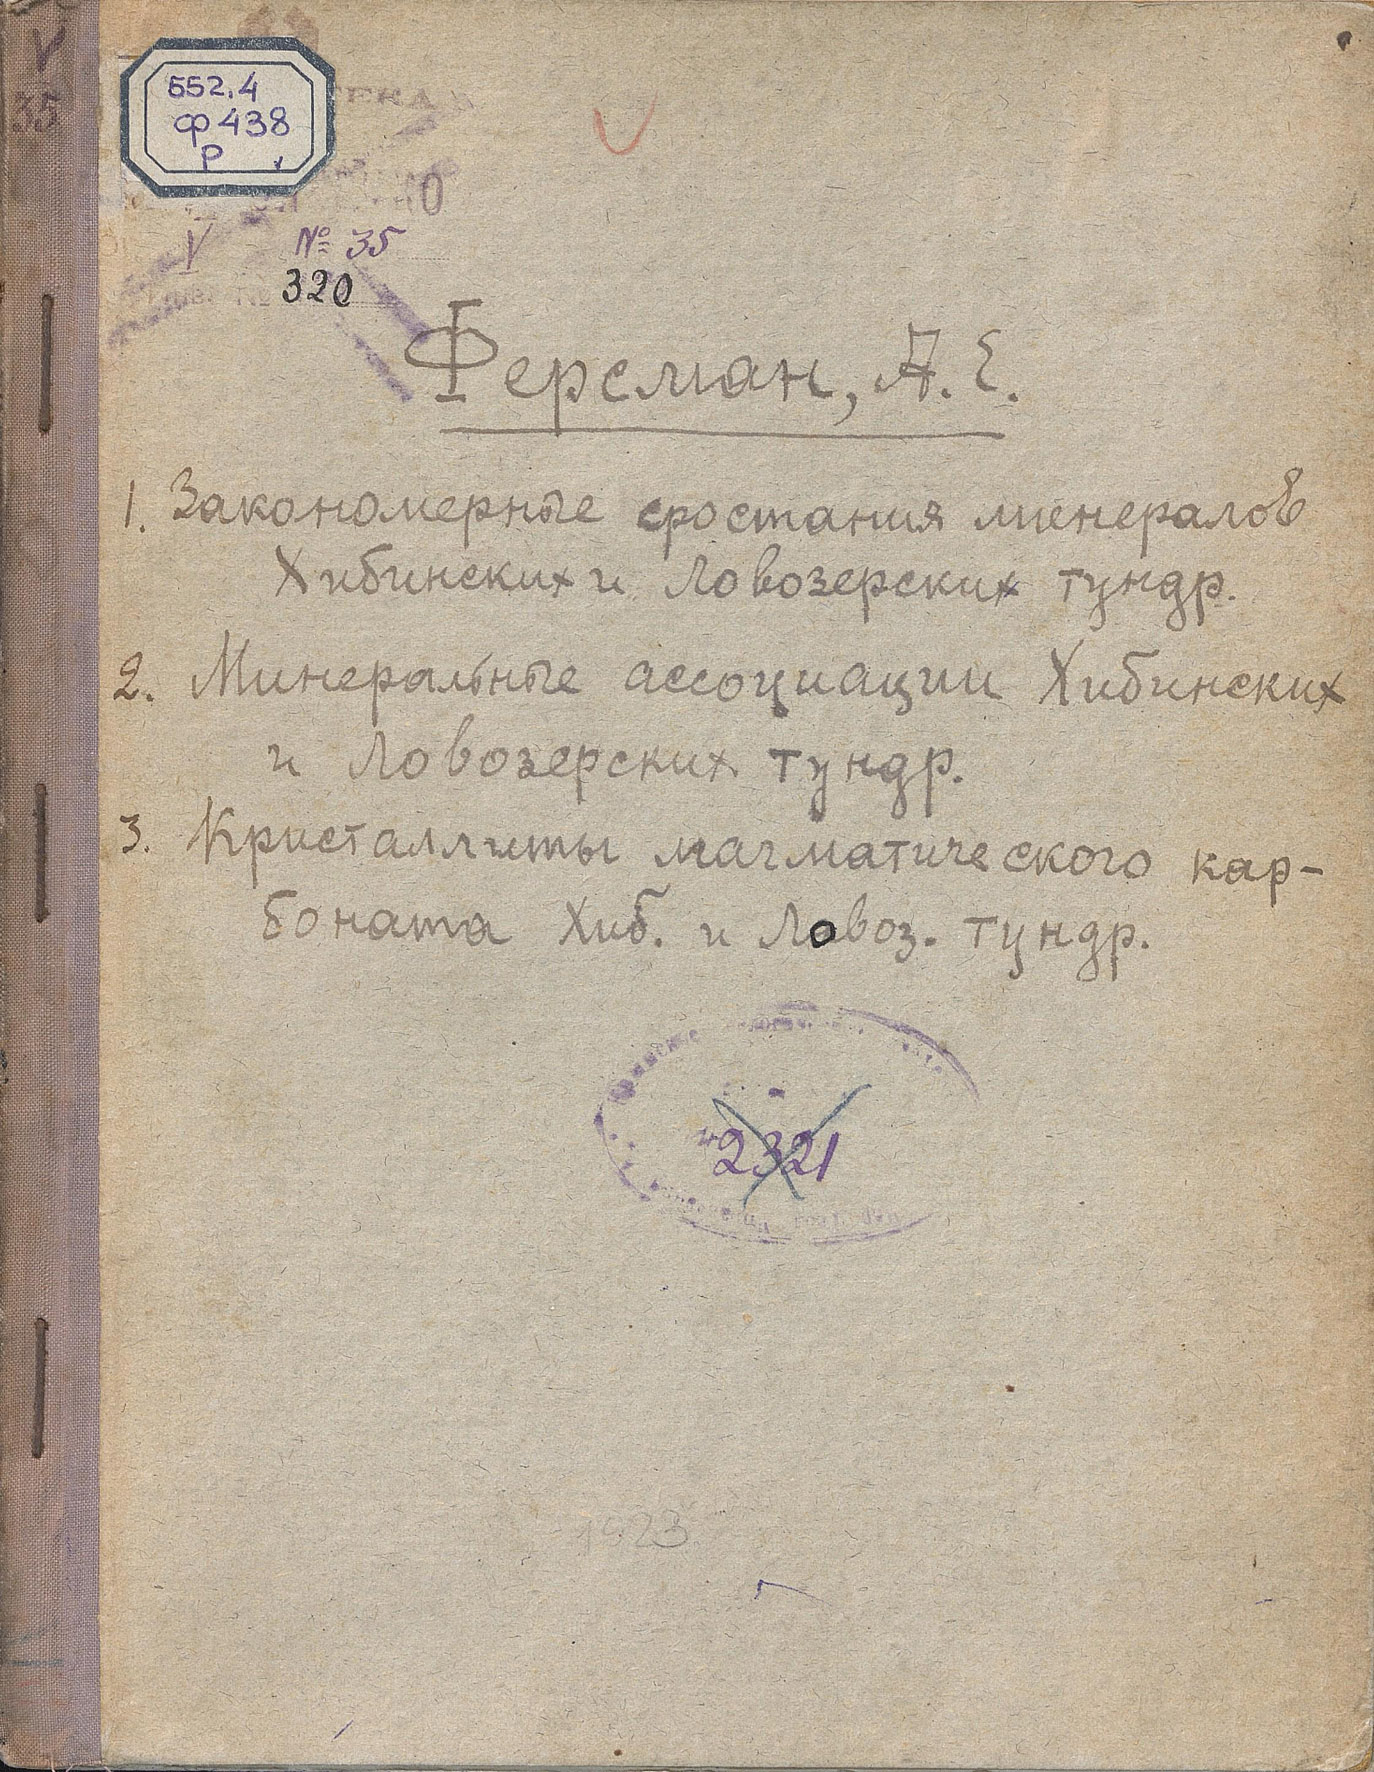 V
35
552.4
ф438
Р
V № 35
320
Ферсман, А. Е.
1. Закономерные сростания минералов
Хибинских и Ловозерских тундр.
2. Минеральные ассоциации Хибинских
и Ловозерских тундр.
3. Кристаллиты магматического кар-
боната Хиб. и Ловоз. тундр.
2321
1923